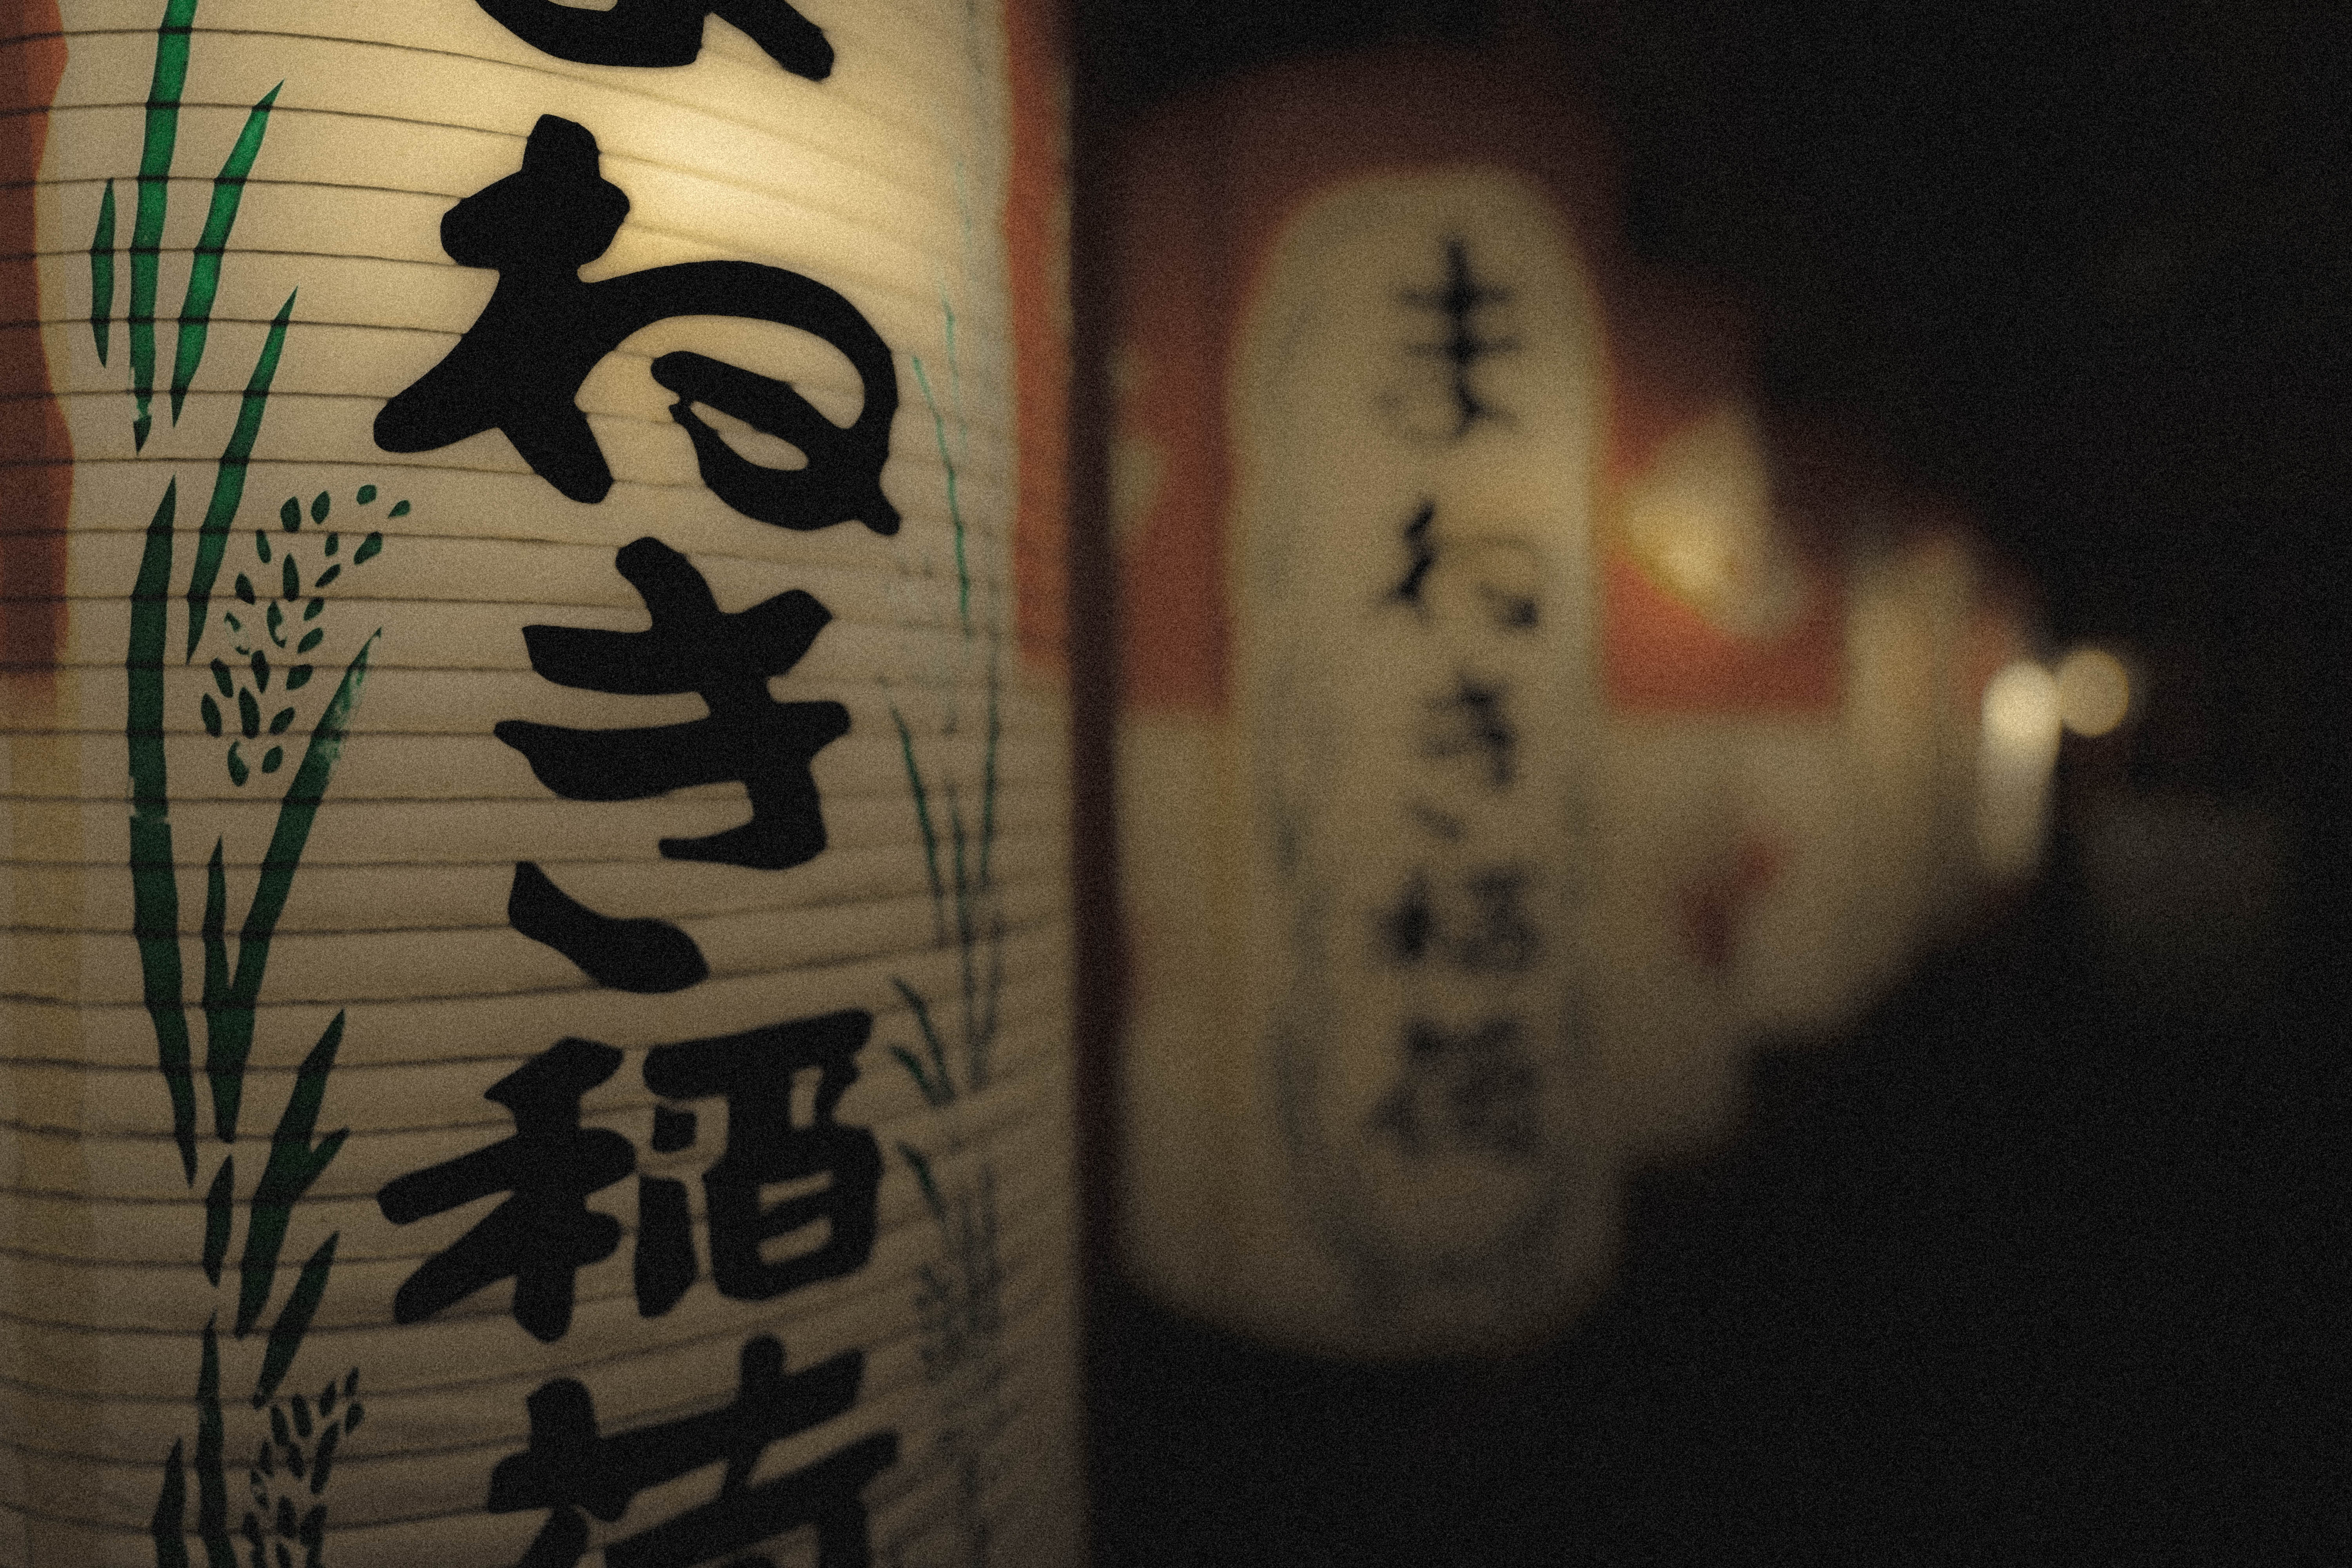 まねき稲荷
まねき稲荷